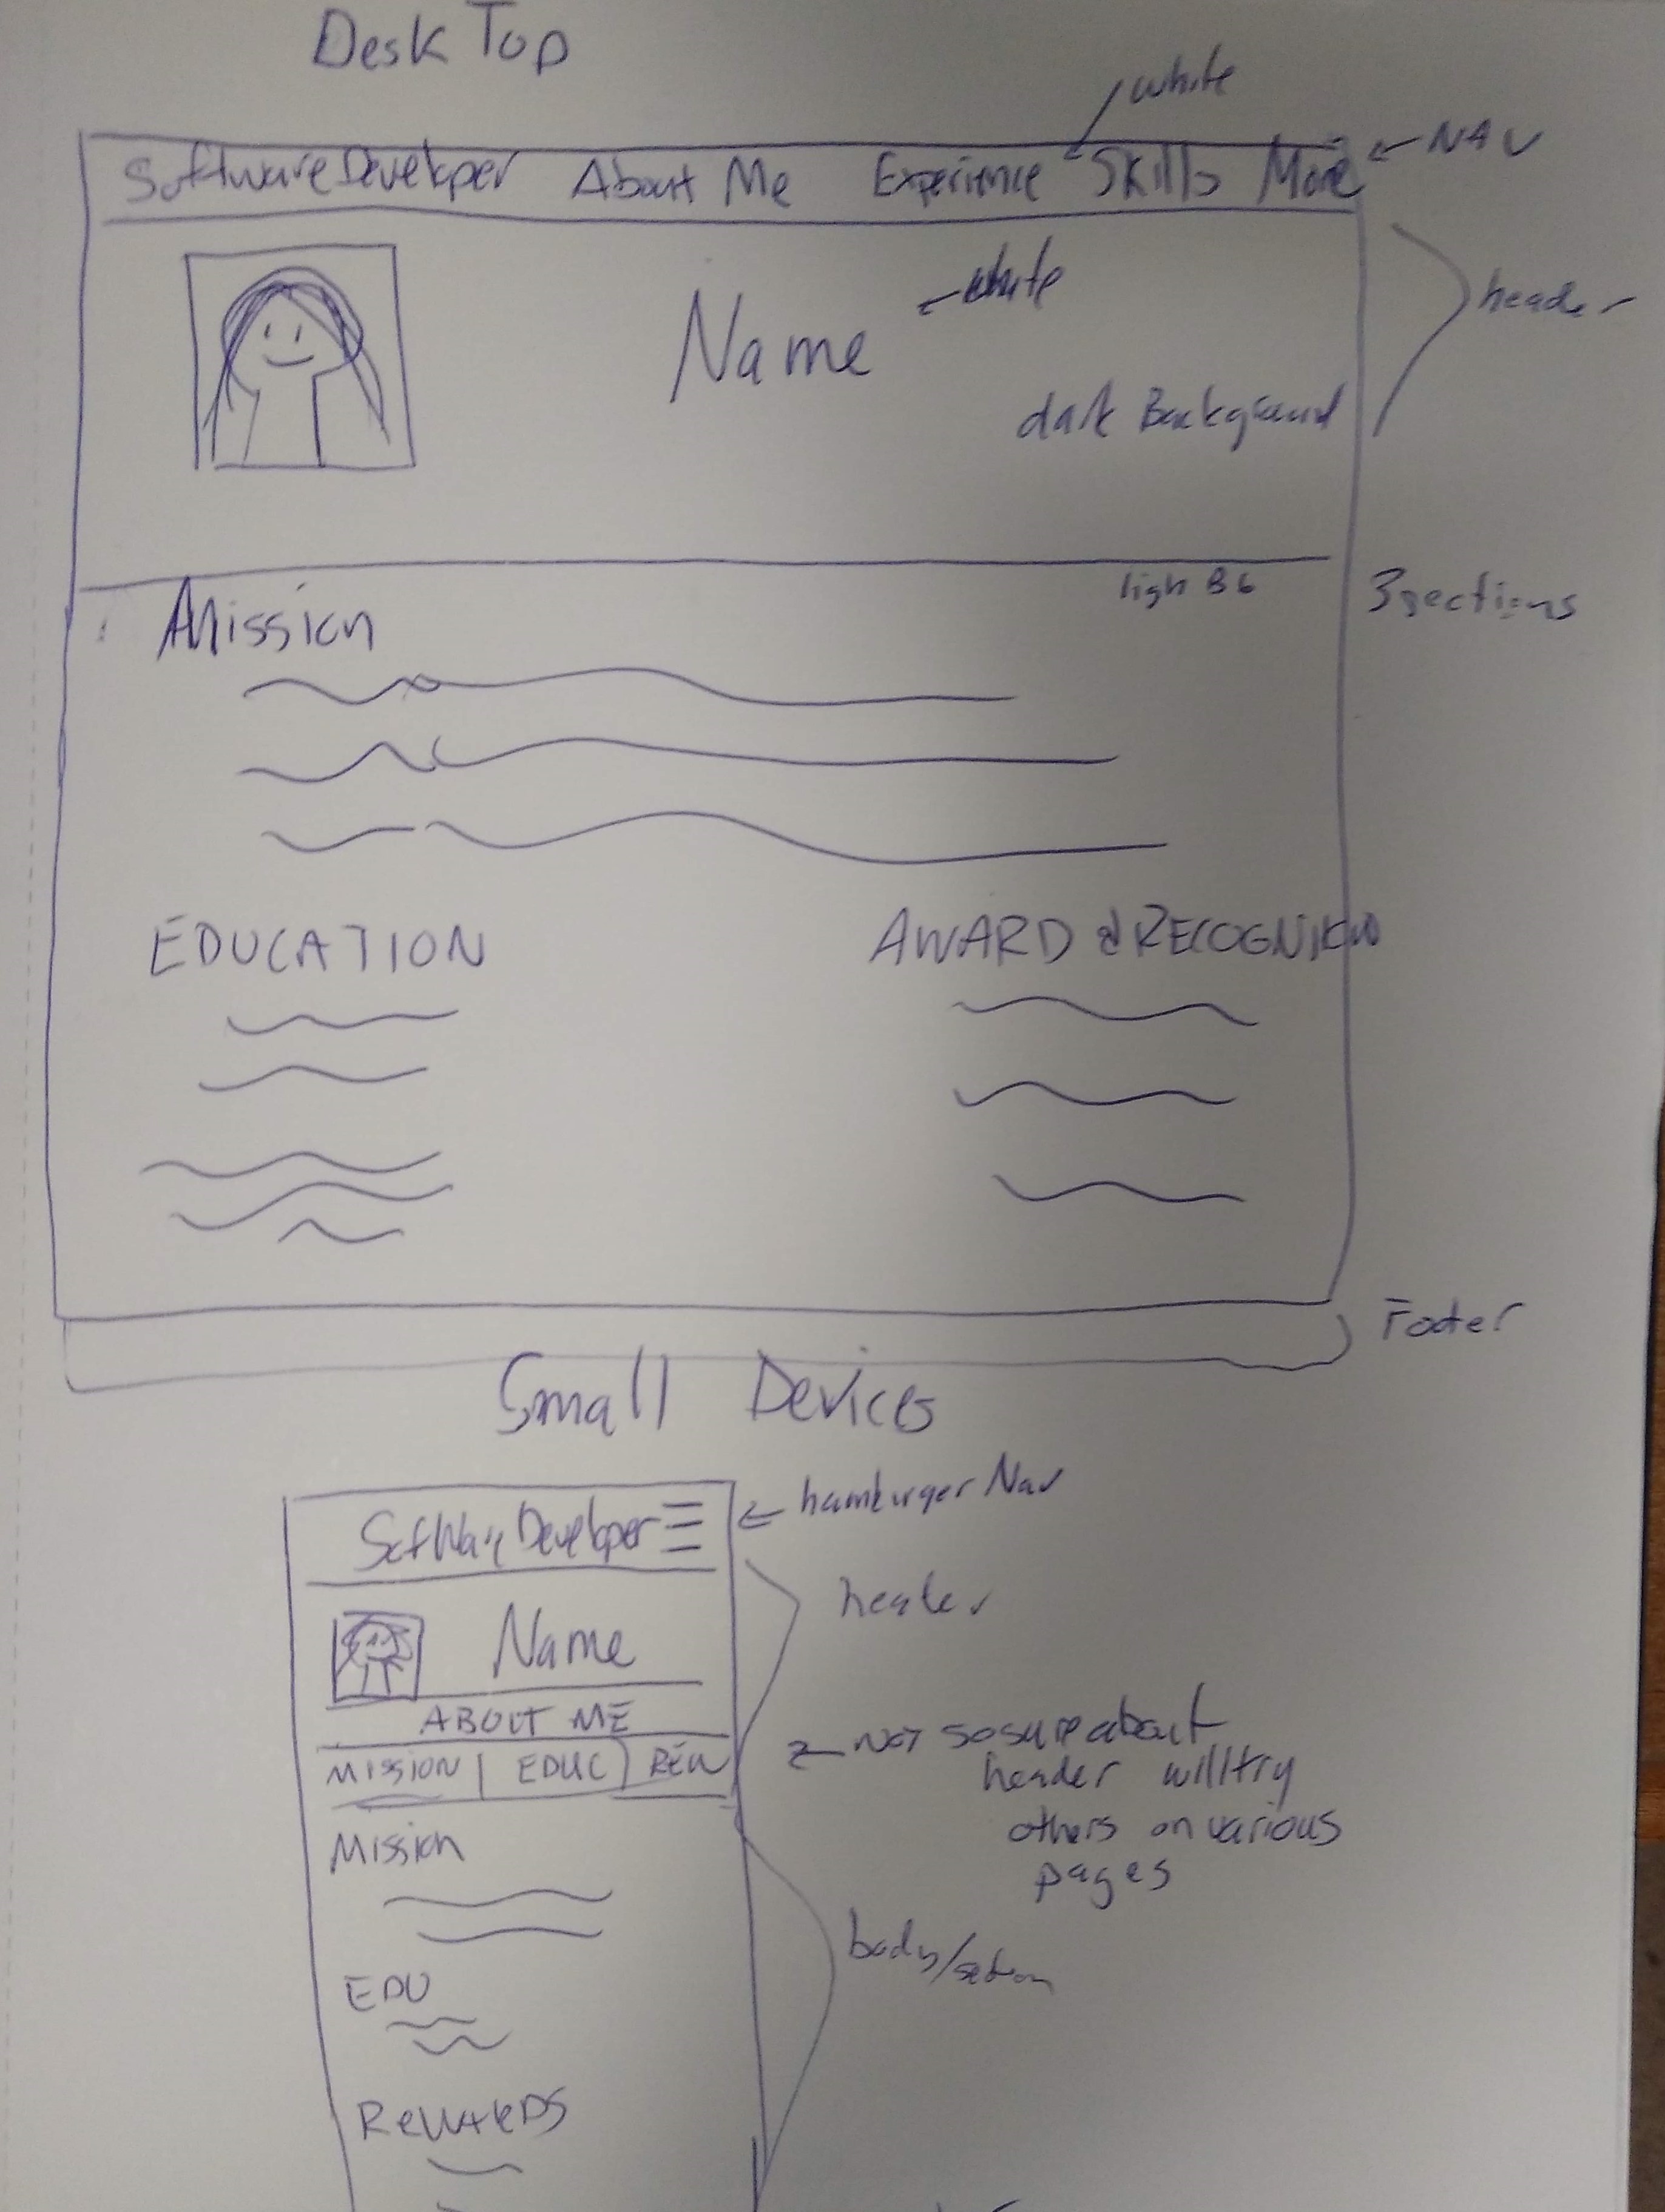 Desk Top
white
Software Developer About Me Experience Skills More ← NAV
Name ← white
header
dark Background
Mission
ligh BG
3 sections
EDUCATION
AWARD & RECOGNI
Footer
Small Devices
Software Developer ← hamburger Nav
header
Name
ABOUT ME
MISSION | EDUC | REW
← Not so sure about
header will try
others on various
pages
Mission
body/
EDU
REWARDS